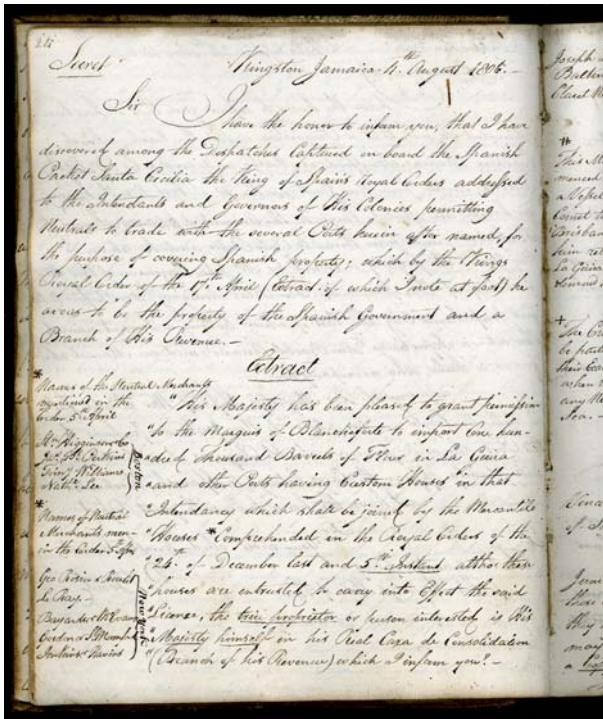 Secret
Kingston Jamaica 4.th August 1806.—
Sir
I have the honor to inform you, that I have
discovered among the Dispatches Captured on board the Spanish
Packet Santa Cicilia the King of Spain's Royal Orders addressed
to the Intendants and Governors of His Colonies permitting
Neutrals to trade with the several Ports herein after named, for
the purpose of covering Spanish property; which by the Kings
Royal Order of the 17th April (Extract of which I note at foot) he
avows to be the property of the Spanish Government and a
Branch of His Revenue.—
Extract
"His Majesty has been pleased to grant permission
"to the Marquis of Blanchforte to import One hun-
"dred Thousand Barrels of Flour in La Guira
"and other Ports having Custom Houses in that
"Intendancy which shall be joined by the Mercantile
"Houses * Comprehended in the Royal Orders of the
"24th of December last and 5th Instant altho these
"houses are entrusted to carry into Effect the said
"License, the true proprietor or person interested is His
"Majesty himself in his Real Caxa de Consolidation
"(Branch of his Revenue) which I inform you".—
*
Names of the Neutral Merchants
mentioned in the
Order 5 April
Higginson & Co
Perkins
Williams
Nath. Lee
Boston
*
Names of Neutral
Merchants men-
in the Order 5 Apr
Geo
Le Ray
Bayard
Gordon
Davies
New York
Joseph
*
This M
a Vessel
him
La Guira
+
be
their
any
Sea.—
they
may
a